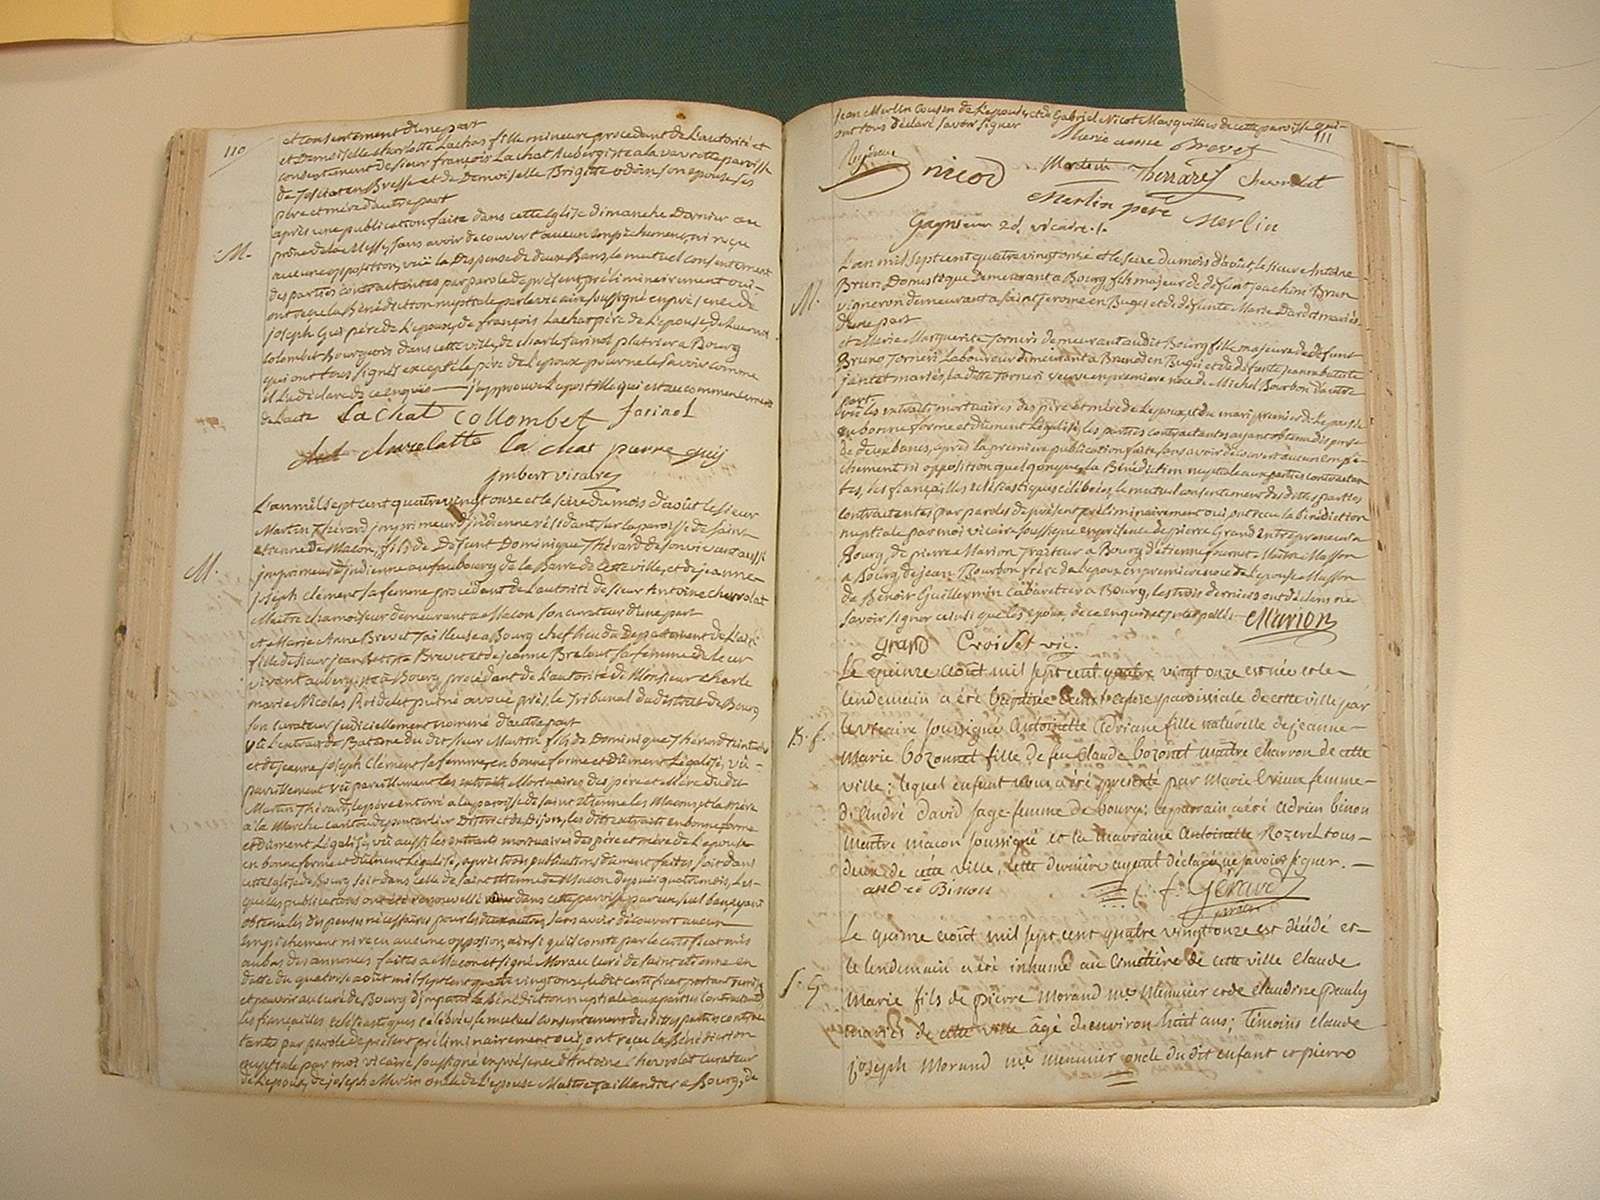 110
et consentement d'une part
et Demoiselle Charlotte Lachat fille mineure procedant de L'autorité et
consentement de sieur françois Lachat Aubergiste a la vavrette paroisse
de Tossiat en Bresse et de Demoiselle Brigitte odoin son epouse ses
père et mère d'autre part
M.
après une publication faite dans cette Eglise dimanche Dernier au
prône de la Messe, sans avoir decouvert aucun Empêchement, ni reçu
aucune opposition, vu la Dispense de deux Bans, le mutuel consentement
des parties contractantes par parole de présent préliminairement oui
ont reçu la Bénédiction nuptiale par le vicaire soussigné en présence de
joseph Gui père de L'epoux, de françois Lachat père de L'epouse, de
Colombet Bourgeois dans cette ville, de Charle farinol platrier a Bourg
qui ont tous signés excepté le père de L'epoux pour ne le savoir comme
il L'a déclaré de ce enquis — j'approuve L'apostille qui est au commencement
de L'acte
La Chat Collombet farinol
la chat pierre guij
imbert vicaire
L'an mil sept cent quatre vingt onze et le seize du mois d'aoùt le sieur
Martin Thérard imprimeur d'indienne résidant sur la paroisse de Saint
M.
etienne de Macon, fils de Défunt Dominique Thérard de son vivant aussi
imprimeur d'indienne au faubourg de la Barre de cette ville, et de jeanne
joseph Clement sa femme procédant de L'autorité de sieur Antoine Chevrolat
Maitre Chamoiseur demeurant a Macon son curateur d'une part
et Marie Anne Brevet Tailleuse a Bourg chef lieu du Departement de L'ain
fille de sieur jean Brevet et de jeanne sa femme de Leur
vivant aubergistes a Bourg procédant de L'autorité de Monsieur Charle
marie Nicolas puiné avoué près le Tribunal du district de Bourg
son curateur judiciellement nommé d'autre part
vu L'extrait de Batême du dit sieur Martin fils de Dominique Thérard
et de jeanne joseph Clement sa femme, en bonne forme et dûment Légalisé, vu
pareillement les extraits Mortuaires des père et Mère du dit
Martin Thérard, le père enterré a la paroisse de saint etienne les Macon et la mère
à la Marche District de Dijon, les dits extraits en bonne forme
et dûment Légalisés, vu aussi les extraits mortuaires des père et mère de L'epouse
en bonne forme et dûment Légalisé, après trois publications dûment faites soit dans
cette Eglise de Bourg soit dans celle de saint etienne de Macon depuis quatre mois, Les
quelles publications ont été renouvellé dans cette paroisse par un seul ban, ayant
obtenu les dispenses nécessaires pour les deux autres, sans avoir découvert aucun
empêchement ni reçu aucune opposition, ainsi qu'il conste par le certificat mis
au bas des annonces faites a Macon et signé Morau curé de saint etienne en
datte du quatorze août mil sept cent quatre vingt onze, le dit certificat portant
et pouvoir au curé de Bourg d'impartir la Bénédiction nuptiale aux parties contractantes
les fiançailles ecclésiastiques célébrées, le mutuel consentement des dites parties contrac
tantes par parole de présent préliminairement oui, ont reçu la Bénédiction
nuptiale par moi vicaire soussigné en présence d'Antoine Chevrolat curateur
de L'epoux, de joseph Merlin oncle de L'epouse Maitre Taillandier a Bourg, de
111
jean Merlin Cousin de L'epouse, et de Gabriel Nicot Marguillier de cette paroisse qui
ont tous déclaré savoir signer
Marie anne Brevet
nicod Martin Therrard Chevrolat
Merlin pere Merlin
Gagneur 2d. vicaire
L'an mil sept cent quatre vingt onze et le seize du mois d'août, le sieur Antoine
M.
Brun Domestique demeurant a Bourg fils majeur de défunt joachim Brun
vigneron demeurant a saint jerome en Bugei et de défunte Marie Dardet mariés
d'une part
et Marie Marguerite Torneri demeurant audit Bourg fille majeure de défunt
Bruno Torneri Laboureur demeurant a en Bugei et de défunte jeanne batiste
jantet mariés, la ditte Torneri veuve en première noce de Michel Bourbon d'autre
part
vu les extraits mortuaires des père et mère de L'epoux, et du mari premier de L'epouse le
en bonne forme et dûment Légalisés, les parties contractantes ayant obtenu dispense
de deux bancs, après la première publication faite, sans avoir découvert aucun empê
chement ni opposition quelqonque, La Bénédiction nuptiale aux parties contractan
tes, les fiançailles eclésiastiques célébrées, le mutuel consentement des dittes parties
contractantes par paroles de présent préliminairement oui, ont reçu la bénédiction
nuptiale par moi vicaire soussigné en présence de pierre Grand Entrepreneur a
Bourg, de pierre Marion Traiteur a Bourg, d'etienne Maitre Masson
a Bourg, de jean Bourbon frère de L'epoux en première noce de L'epouse Masson
de Benoit Guillermin Cabaretier a Bourg, les trois derniers ont déclaré ne
savoir signer celui que les epoux de ce enquis et interpellés
Marion
grand Croidet vic.
Le quinze août mil sept cent quatre vingt onze est née et le
lendemain a été baptisée dans l'eglise paroissiale de cette ville par
B. f.
le vicaire soussigné Antoinette Adriane fille naturelle de jeanne
Marie bozonnet fille de feu claude bozonet maître charron de cette
ville; lequel enfant nous a été presenté par Marie femme
d'André david sage-femme de bourg; le parrain a été Adrien binon
maître macon soussigné et la marraine Antoinette Rozerel tous
deux de cette ville, cette derniere ayant déclaré ne savoir signer. —
andré Binon
f. f. Gérard
Le quinze août mil sept cent quatre vingt onze est décédé et
le lendemain a été inhumé au Cimetière de cette ville Claude
S. G
Marie fils de pierre Morand me Menuisier et de Claudine pauly
mariés de cette ville âgé d'environ huit ans; Témoins Claude
joseph Morand me menuisier oncle du dit enfant et pierre